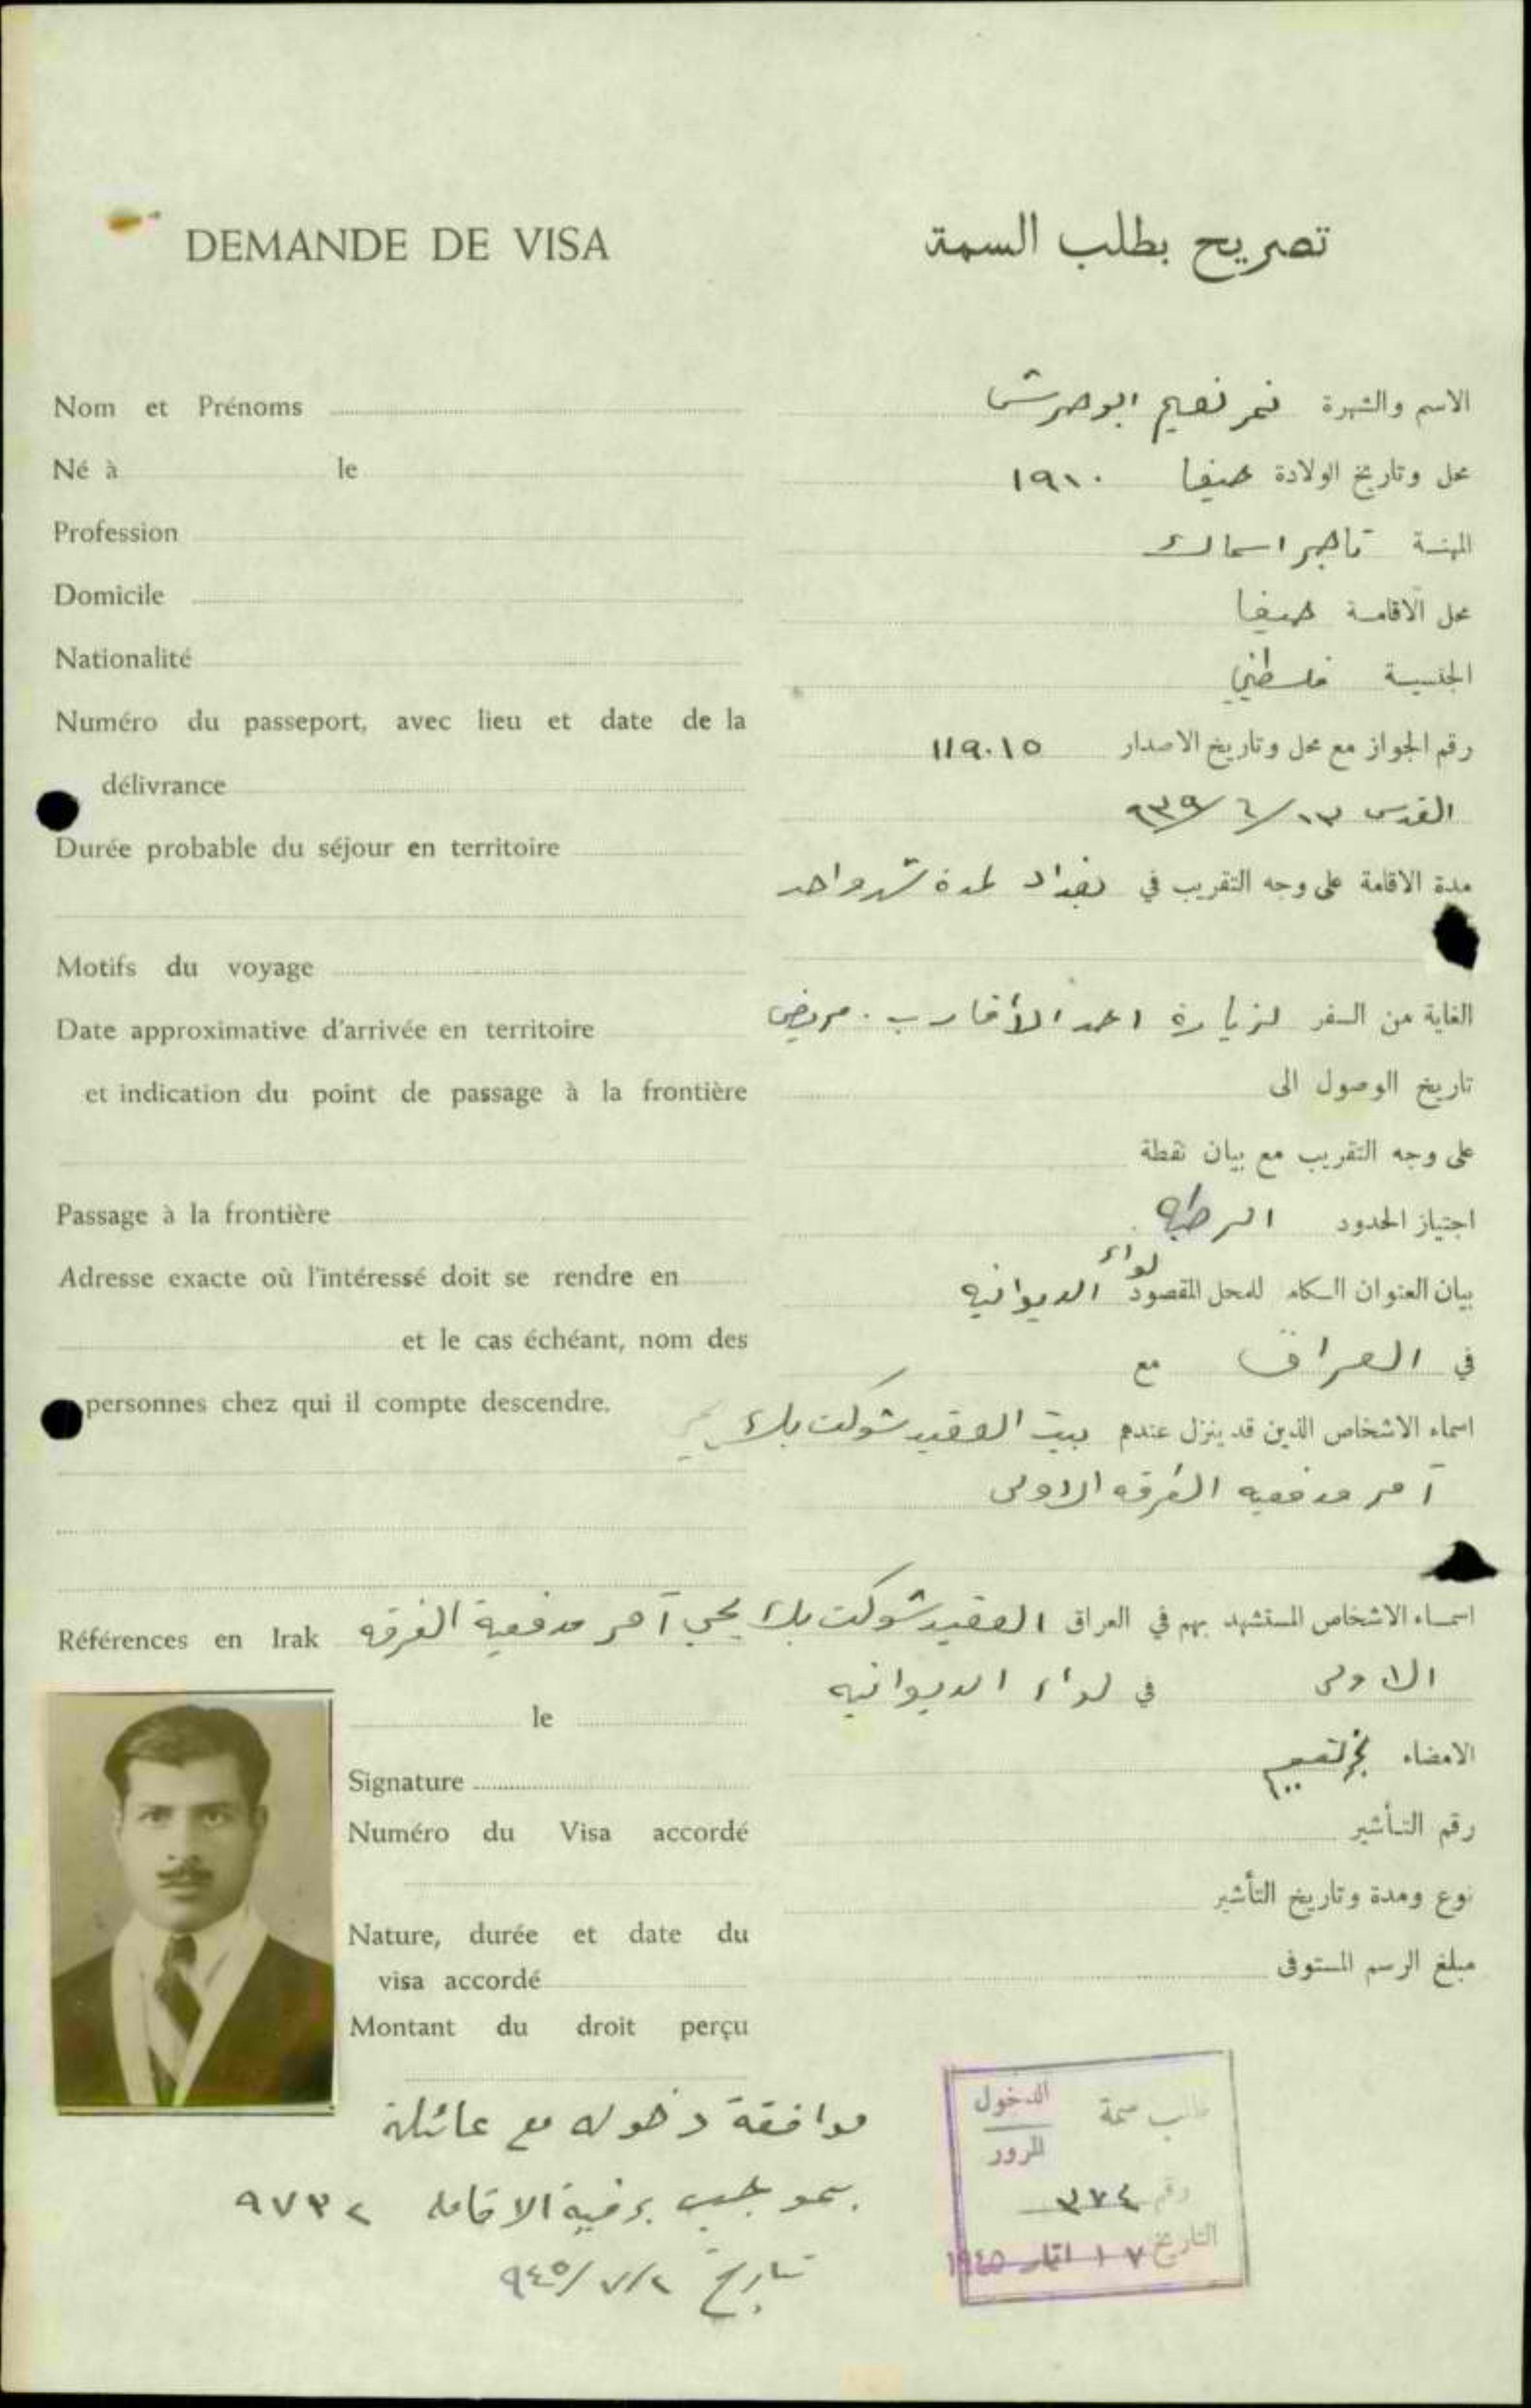 DEMANDE DE VISA
تصريح بطلب السمة
Nom et Prénoms
Né à le
Profession
Domicile
Nationalité
Numéro du passeport, avec lieu et date de la
délivrance
Durée probable du séjour en territoire
Motifs du voyage
Date approximative d'arrivée en territoire
et indication du point de passage à la frontière
Passage à la frontière
Adresse exacte où l'intéressé doit se rendre en
et le cas échéant, nom des
personnes chez qui il compte descendre.
Références en Irak
le
Signature
Numéro du Visa accordé
Nature, durée et date du
visa accordé
Montant du droit perçu
الاسم والشهرة نمر نعيم ابو
محل وتاريخ الولادة حيفا ١٩١٠
المهنة تاجر اسماك
محل الاقامة حيفا
الجنسية فلسطيني
رقم الجواز مع محل وتاريخ الاصدار ١١٩٠١٥
القدس ١٣/٦/٩٣٩
مدة الاقامة على وجه التقريب في بغداد لمدة شهر واحد
الغاية من السفر لزيارة احد الأقارب . مريض
تاريخ الوصول الى
على وجه التقريب مع بيان نقطة
اجتياز الحدود الرطبه
بيان العنوان الكامل للمحل المقصود لواء الديوانيه
في العراق مع
اسماء الاشخاص الذين قد ينزل عندهم بيت العقيد شوكت بك
آمر مدفعيه الفرقه الاولى
اسماء الاشخاص المستشهد بهم في العراق العقيد شوكت بك يحيى آمر مدفعية الفرقه
الاولى في لواء الديوانيه
الامضاء نمر نعيم
رقم التأشير
نوع ومدة وتاريخ التأشير
مبلغ الرسم المستوفى
طالب سمة الدخول
المرور
رقم ٣٧٤
التاريخ ١٧ ايار ١٩٤٥
موافقة دخوله مع عائلة
بموجب برقية الاقامه ٩٧٣٢
تاريخ ٢/٧/٩٤٥